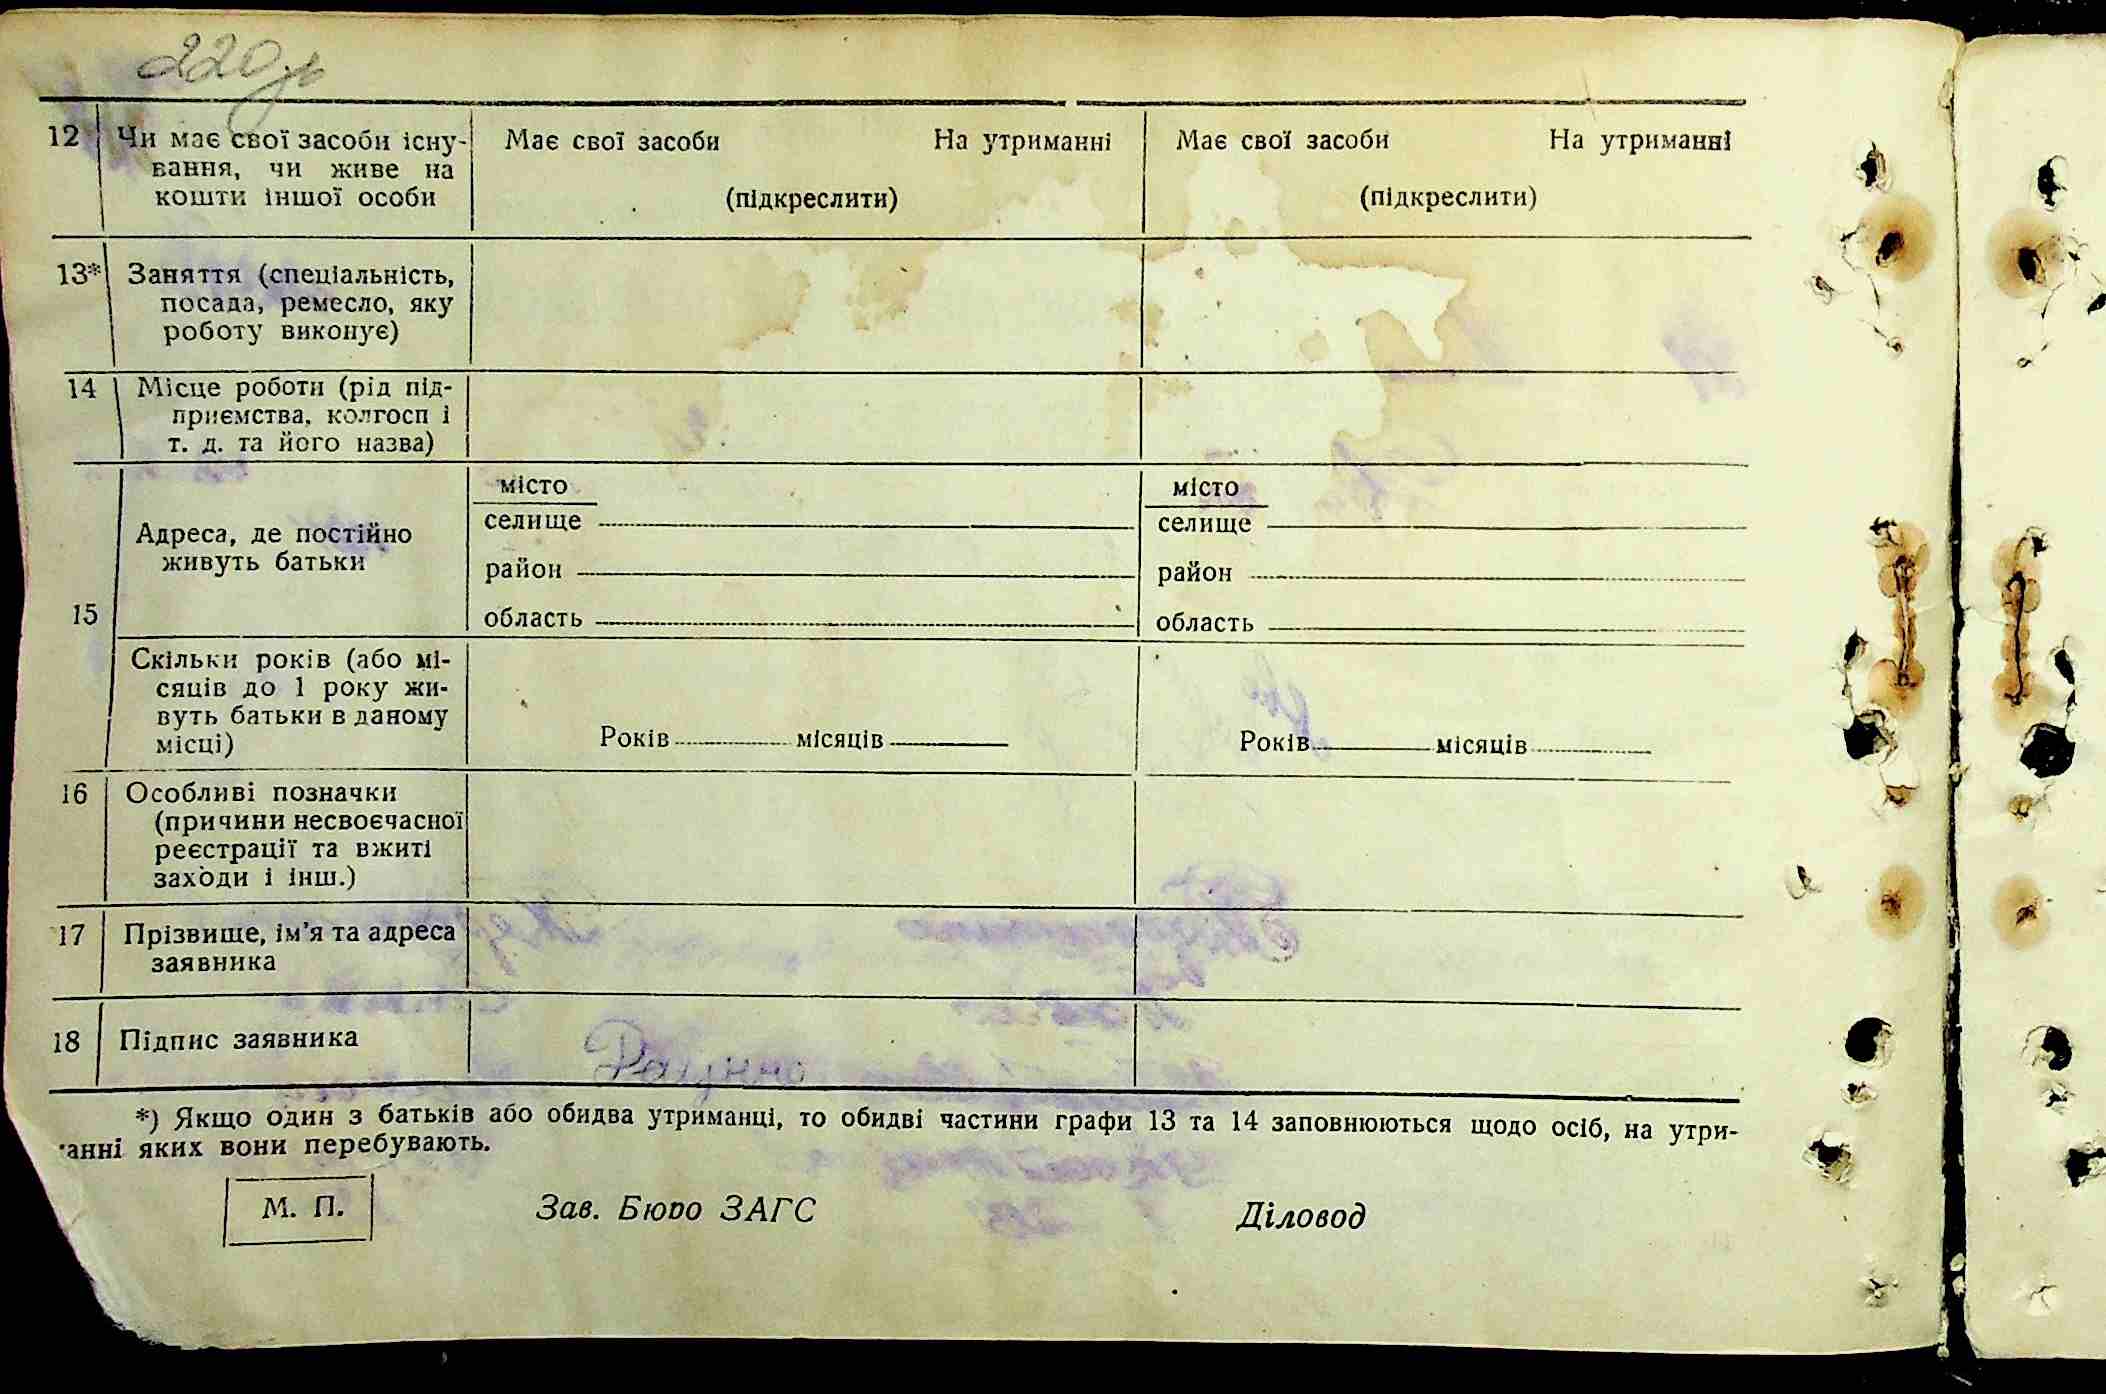 12 Чи має свої засоби існу- Має свої засоби На утриманні Має свої засоби На утриманні
вання, чи живе на
кошти іншої особи (підкреслити) (підкреслити)
13* Заняття (спеціальність,
посада, ремесло, яку
роботу виконує)
14 Місце роботи (рід під-
приємства, колгосп і
т. д. та його назва)
15 Адреса, де постійно
живуть батьки
місто місто
селище селище
район район
область область
Скільки років (або мі-
сяців до 1 року жи-
вуть батьки в даному
місці)
Років місяців Років місяців
16 Особливі позначки
(причини несвоєчасної
реєстрації та вжиті
заходи і інш.)
17 Прізвище, ім'я та адреса
заявника
18 Підпис заявника
*) Якщо один з батьків або обидва утриманці, то обидві частини графи 13 та 14 заповнюються щодо осіб, на утри-
анні яких вони перебувають.
М. П. Зав. Бюро ЗАГС Діловод